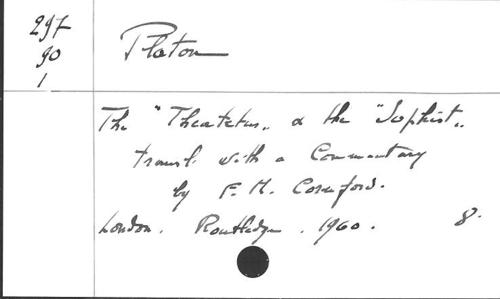 297
90
1
Platon
The "Theatetus„ & the "Sophist„
transl. with a Commentary
by F. M. Cornford.
London. Routledge. 1960. 8.